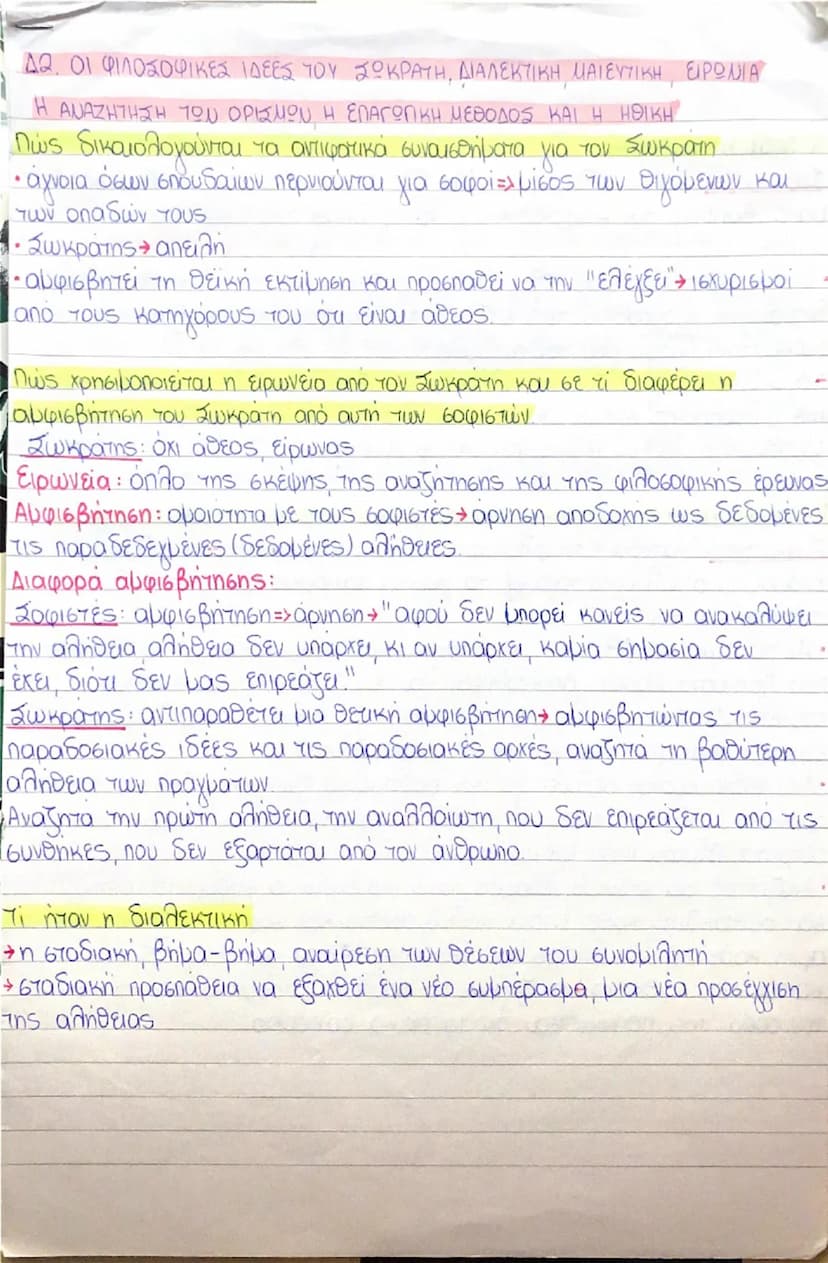 Δ2. ΟΙ ΦΙΛΟΣΟΦΙΚΕΣ ΙΔΕΕΣ ΤΟΥ ΣΩΚΡΑΤΗ, ΔΙΑΛΕΚΤΙΚΗ, ΜΑΙΕΥΤΙΚΗ, ΕΙΡΩΝΙΑ
Η ΑΝΑΖΗΤΗΣΗ ΤΩΝ ΟΡΙΣΜΩΝ, Η ΕΠΑΓΩΓΙΚΗ ΜΕΘΟΔΟΣ ΚΑΙ Η ΗΘΙΚΗ
Πώς δικαιολογούνται τα αντιφατικά συναισθήματα για τον Σωκράτη
• άγνοια όσων σπουδαίων περνιούνται για σοφοί => μίσος των θιγόμενων και
των οπαδών τους
• Σωκράτης → απειλή
• αμφισβητεί τη θεϊκή εκτίμηση και προσπαθεί να την "ελέγξει" → ισχυρισμοί
από τους κατηγόρους του ότι είναι άθεος.
Πώς χρησιμοποιείται η ειρωνεία από τον Σωκράτη και σε τί διαφέρει η
αμφισβήτηση του Σωκράτη από αυτή των σοφιστών
Σωκράτης: όχι άθεος, είρωνας
Ειρωνεία: όπλο της σκέψης, της αναζήτησης και της φιλοσοφικής έρευνας
Αμφισβήτηση: ομοιότητα με τους σοφιστές → άρνηση αποδοχής ως δεδομένες
τις παραδεδεγμένες (δεδομένες) αλήθειες.
Διαφορά αμφισβήτησης:
Σοφιστές: αμφισβήτηση => άρνηση → "αφού δεν μπορεί κανείς να ανακαλύψει
την αλήθεια, αλήθεια δεν υπάρχει, κι αν υπάρχει, καμία σημασία δεν
έχει, διότι δεν μας επιρεάζει."
Σωκράτης: αντιπαραθέτει μια θετική αμφισβήτηση → αμφισβητώντας τις
παραδοσιακές ιδέες και τις παραδοσιακές αρχές, αναζητά τη βαθύτερη
αλήθεια των πραγμάτων.
Αναζητά την πρώτη αλήθεια, την αναλλοίωτη, που δεν επιρεάζεται από τις
συνθήκες, που δεν εξαρτάται από τον άνθρωπο.
Τί ήταν η διαλεκτική
→ η σταδιακή, βήμα-βήμα, αναίρεση των θέσεων του συνομιλητή
→ σταδιακή προσπάθεια να εξαχθεί ένα νέο συμπέρασμα, μια νέα προσέγγιση
της αλήθειας